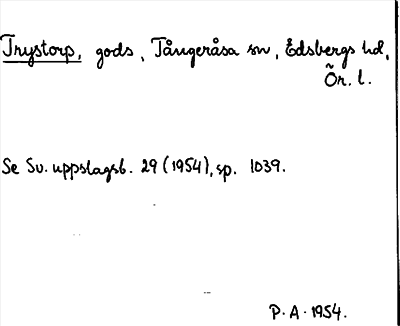 Trystorp, gods, Tångeråsa sn, Edsbergs hd,
Ör. l.
Se Sv. uppslagsb. 29 (1954), sp. 1039.
P. A. 1954.